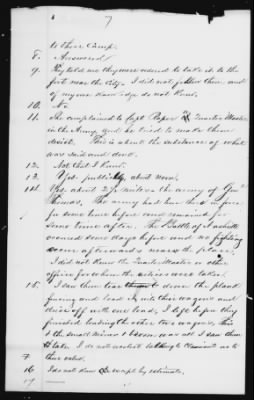 7
to their Camp.
8. Answered
9. They told me they were ordered to take it to the
fort near the City. I did not follow them and
of my own knowledge do not know.
10. No.
11. She complained to Capt Quarter Master
in the Army, and he tried to make them
desist. This is about the substance of what
was said and done.
12. Not that I know.
13. Yes. publicly about noon.
14. Yes about 2 miles the army of Genl
Thomas. The army had been there in force
for some time before and remained for
some time after. The Battle of Nashville
occurred some days before and no fighting
soon afterwards near the place.
I did not know the Quarter Master or other
officer for whom the articles were taken.
15. I saw them tear down the plank
fencing and load it into their wagons and
drive off with one load, I left before they
finished loading the other two wagons, this
& the small mirror was all I saw them
take. I do not as to
their value.
16. I do not know except by estimate.
17